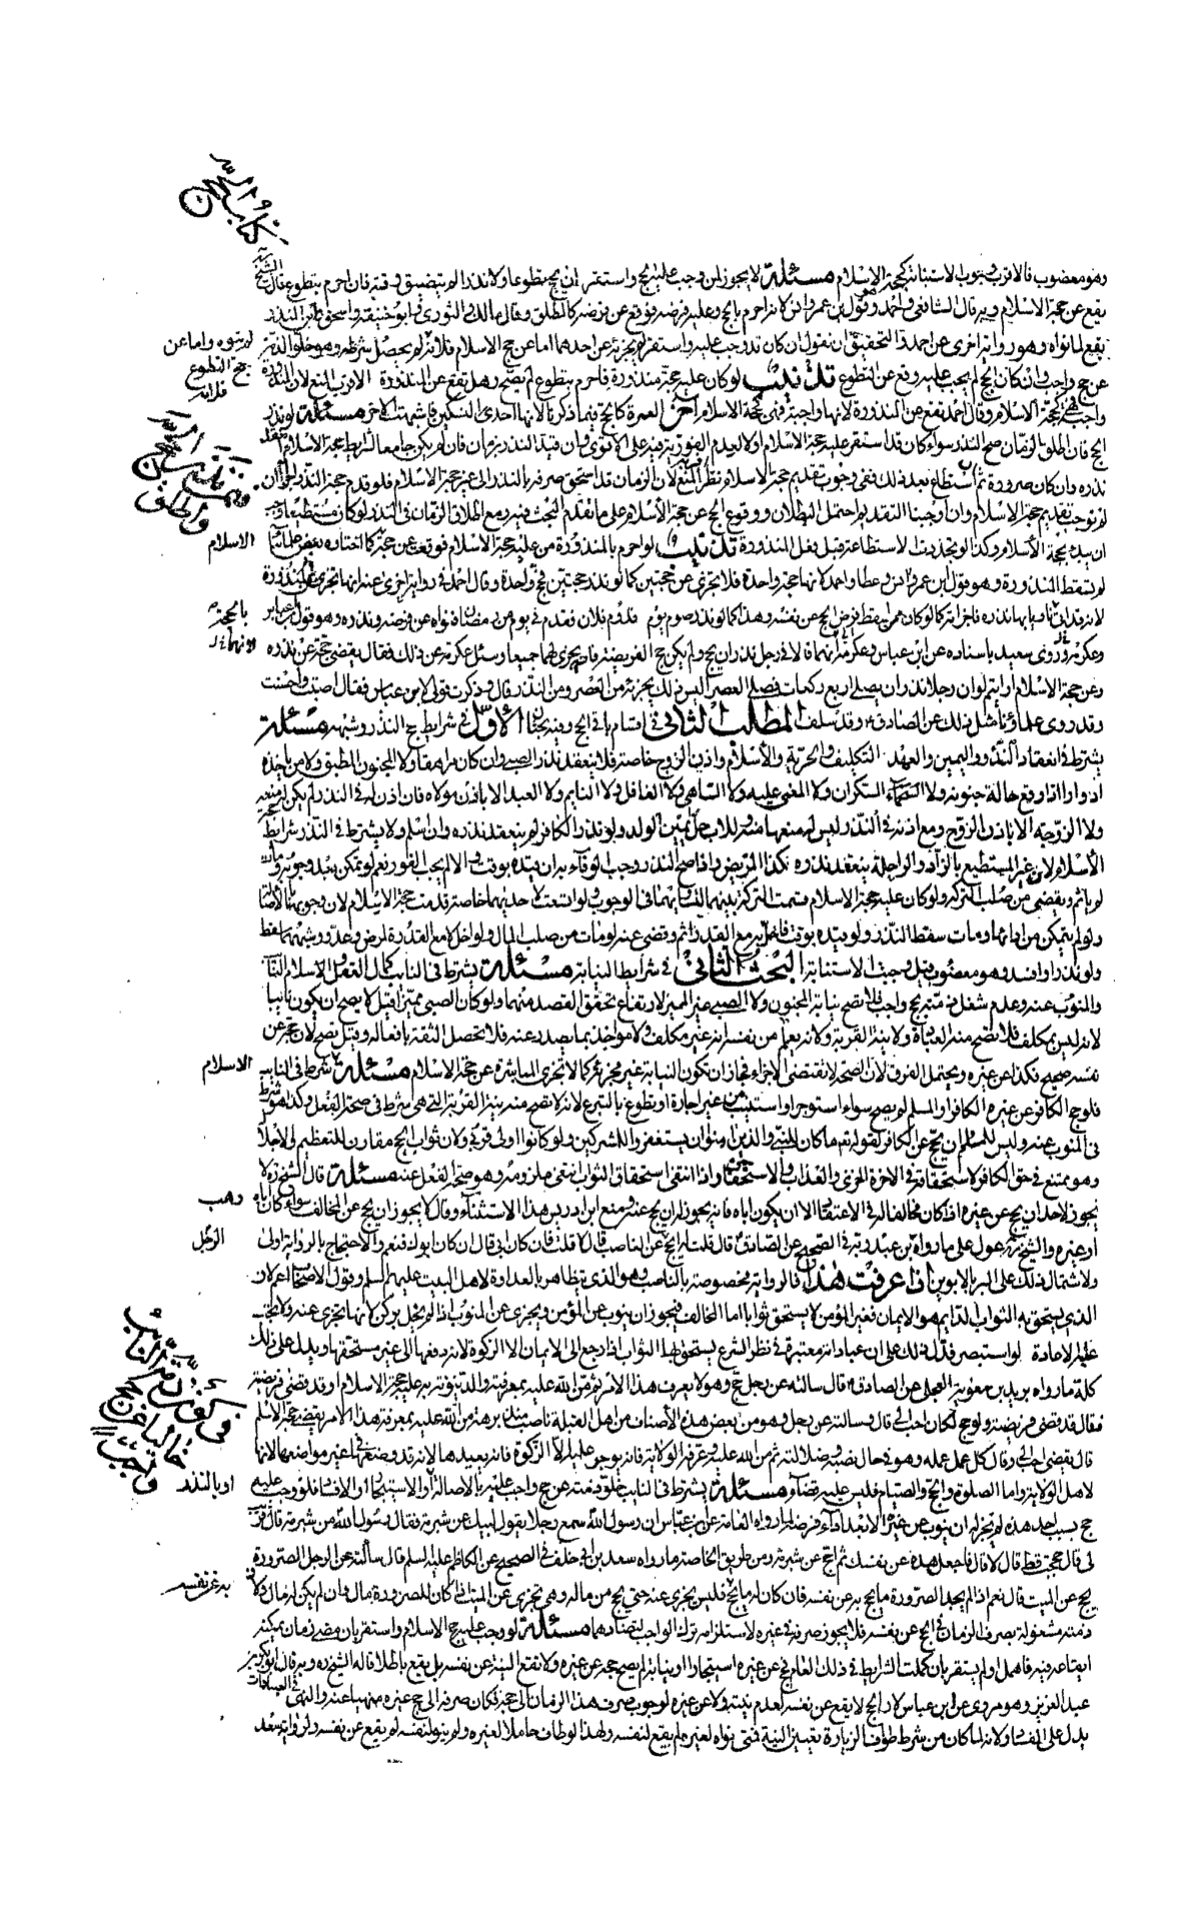 وهو معضوب فالاقرب وجوب الاستنابة كحجة الاسلام مسئلة لا يجوز لمن وجب عليه الحج واستقر ان يحج تطوعا ولا نذرا لم يتضيق وقته فان احرم بتطوع قال الشيخ
يقع عن حجة الاسلام وبه قال الشافعي واحمد وهو قول ابن عمر وانس لانه احرم بالحج وعليه فرضه فوقع عن فرضه كالمطلق وقال مالك والثوري وابو حنيفة واسحق وابن المنذر
يقع لما نواه وهو رواية اخرى عن احمد والتحقيق ان نقول ان كان قد وجب عليه واستقر لم يجزئه عن احدهما اما عن حج الاسلام فلانه لم يحصل شرطه وهو خلو الذمة
لم ينوه واما عن حج التطوع فلانه
عن حج واجب وان كان الحج لم يجب عليه وقع عن التطوع تذنيب لو كان عليه حجة منذورة فاحرم بتطوع لم يصح وهل تقع عن المنذورة الاقرب المنع لان المنذورة
واجبة فهي كحجة الاسلام وقال احمد يقع عن المنذورة لانها واجبة فهي كحجة الاسلام آخر العمرة كالحج فيما ذكرنا لانها احدى النسكين فاشبهت الاخر مسئلة لو نذر
الحج فان اطلق الزمان صح النذر سواء كان قد استقر عليه حجة الاسلام او لا لعدم الفورية فيه على الاقوى وان قيد النذر بزمان فان لم يكن جامعا لشرايط حجة الاسلام انعقد
نذره وان كان صرورة ثم استطاع بعد ذلك ففي وجوب تقديم حجة الاسلام نظر اقربه المنع لان الزمان قد استحق صرفه بالنذر الى غير حجة الاسلام فلو قدم حجة النذر
لم نوجب تقديم حجة الاسلام وان اوجبنا التقديم احتمل البطلان ووقوع الحج عن حجة الاسلام على ما تقدم البحث فيه ومع اطلاق الزمان في النذر لو كان مستطيعا وجب
ان يبدء بحجة الاسلام وكذا لو تجددت الاستطاعة قبل فعل المنذورة تذنيب لو احرم بالمنذورة من عليه حجة الاسلام فوقعت عن حجة الاسلام كما اختاره بعض علمائنا
لم تسقط المنذورة وهو قول ابن عمر وانس وعطا واحمد لانها حجة واحدة فلا تجزى عن حجتين كما لو نذر حجتين فحج واحدة وقال احمد في رواية اخرى عنه انها تجزى عن المنذورة
لانه قد اتى ناويا بها نذره فاجزأته كما لو كان ممن يسقط فرض الحج عن نفسه وهذا كما لو نذر صوم يوم يقدم فلان فقدم في يوم من رمضان فنواه عن فرضه ونذره وهو قول ابن عباس
وعكرمة وروى سعيد باسناده عن ابن عباس وعكرمة انهما قالا في رجل نذر ان يحج ولم يكن حج الفريضة قال يجزى لهما جميعا وسئل عكرمة عن ذلك فقال يقضي حجة عن نذره
وعن حجة الاسلام ارايتم لو ان رجلا نذر ان يصلي اربع ركعات فصلى العصر اليس ذلك يجزئه من العصر ومن النذر قال وذكرت قولي لابن عباس فقال اصبت واحسنت
وقد روى علماؤنا مثل ذلك عن الصادق وقد سلف المطلب الثاني في اقسام باقي الحج وفيه بحثان الاول في شرايط حج النذر وشبهه مسئلة
يشترط في انعقاد النذر واليمين والعهد التكليف والحرية والاسلام واذن الزوج خاصة فلا ينعقد نذر الصبي وان كان مراهقا ولا المجنون المطبق ولا من ياخذه
ادوارا اذا وقع حالة جنونه ولا السكران ولا المغمى عليه ولا الساهي ولا الغافل ولا النايم ولا العبد الا باذن مولاه فان اذن له في النذر لم يكن له منعه
ولا الزوجة الا باذن الزوج ومع اذنه في النذر ليس له منعها منه وللاب حل يمين الولد ولو نذر الكافر لم ينعقد نذره وان اسلم ولا يشترط في النذر شرايط حجة
الاسلام لان غير المستطيع بالزاد والراحلة ينعقد نذره وكذا المريض واذا صح النذر وجب الوفاء به ان قيده بوقت والا لم يجب الفور نعم لو تمكن بعد وجوبه ومات
لم ياثم ويقضى من صلب التركة ولو كان عليه حجة الاسلام قسمت التركة بينهما لتساويهما في الوجوب ولو اتسعت لاحديهما خاصة قدمت حجة الاسلام لان وجوبها بالاصالة
ولو لم يتمكن من ادائها ومات سقط النذر ولو قيده بوقت فاخل به مع القدرة اثم وقضي عنه لو مات من صلب المال ولو اخل لا مع القدرة لمرض وعدو وشبههما سقط
ولو نذر او افسد وهو معضوب قيل وجبت الاستنابة البحث الثاني في شرايط النيابة مسئلة يشترط في النايب كمال العقل والاسلام
والمنوب عنه وعدم شغل ذمته بحج واجب فلا تصح نيابة المجنون ولا الصبي غير المميز لارتفاع تحقق القصد منهما ولو كان الصبي مميزا قيل لا يصح ان يكون نايبا
لانه ليس بمكلف فلا تصح منه العبادة ولا نية القربة ولانه يعلم من نفسه انه غير مكلف ولا مؤاخذ بما يصدر عنه فلا تحصل الثقة بافعاله وقيل يصح لان حجه عن
نفسه صحيح فكذا عن غيره ويحتمل الفرق لان الصحة لا تقتضي الاجزاء فجاز ان تكون النيابة غير مجزئة كما لا تجزى المباشرة عن حجة الاسلام مسئلة يشترط في النايب الاسلام
فلو حج الكافر عن غيره الكافر او المسلم لم يصح سواء استوجر او استنيب من غير اجارة او تطوع بالتبرع لانه لا تصح منه نية القربة التي هي شرط في صحة الفعل وكذا هو شرط
في المنوب عنه وليس للمسلم ان يحج عن الكافر لقوله تع ما كان للنبي والذين امنوا ان يستغفروا للمشركين ولو كانوا اولى قربى ولان ثواب الحج مقارن للتعظيم والاجلال
وهو ممتنع في حق الكافر لاستحقاقه في الاخرة الخزي والعذاب والاستخفاف واذا انتفى استحقاق الثواب انتفى ملزومه وهو صحة الفعل عنه مسئلة قال الشيخ ره لا
يجوز لاحد ان يحج عن غيره اذا كان مخالفا له في الاعتقاد الا ان يكون اباه فانه يجوز له ان يحج عنه ومنع ابن ادريس هذا الاستثناء وقال لا يجوز ان يحج عن المخالف سواء كان اباه
او غيره والشيخ ره عول على ما رواه وهب بن عبد ربه في الصحيح عن الصادق قال قلت له ايحج الرجل عن الناصب قال لا قلت فان كان ابي قال ان كان ابوك فنعم والاحتجاج بالرواية اولى
ولاشتمال ذلك على البر بالابوين اذا عرفت هذا فالرواية مخصوصة بالناصب وهو الذي يتظاهر بالعداوة لاهل البيت عليهم السلم وقول الاصحاب
الذي يستحق به الثواب الدايم هو الايمان فغير المؤمن لا يستحق ثوابا اما المخالف فيجوز ان ينوب عن المؤمن ويجزى عن المنوب اذا لم يخل بركن لانها تجزى عنه ولا تجب
عليه الاعادة لو استبصر فدل ذلك على ان عباداته معتبرة في نظر الشرع يستحق بها الثواب اذا رجع الى الايمان الا الزكوة لانه دفعها الى غير مستحقها ويدل على ذلك
كله ما رواه بريد بن معوية العجلي عن الصادق قال سالته عن رجل حج وهو لا يعرف هذا الامر ثم من الله عليه بمعرفته والدينونة به عليه حجة الاسلام او قد قضى فريضته
فقال قد قضى فريضته ولو حج لكان احب الي قال وسالته عن رجل وهو من بعض هذه الاصناف من اهل القبلة ناصب متدين ثم من الله عليه بمعرفة هذا الامر يقضي حجة الاسلام
قال يقضي احب الي وقال كل عمل عمله وهو في حال نصبه وضلالته ثم من الله عليه وعرفه الولاية فانه يوجر عليه الا الزكوة فانه يعيدها لانه قد وضعها في غير مواضعها لانها
لاهل الولاية واما الصلوة والحج والصيام فليس عليه قضاء مسئلة يشترط في النايب خلو ذمته عن حج واجب عليه بالاصالة او بالنذر او الاستيجار او الافساد فلو وجب عليه
حج بسبب احد هذه لم يجز له ان ينوب عن غيره الا بعد اداء فرضه لما رواه العامة عن ابن عباس ان رسول الله سمع رجلا يقول لبيك عن شبرمة فقال رسول الله من شبرمة قال قريب
لي قال حججت قط قال لا قال فاجعل هذه عن نفسك ثم احجج عن شبرمة ومن طريق الخاصة ما رواه سعد بن ابي خلف في الصحيح عن الكاظم عليه السلم قال سالته عن الرجل الصرورة
يحج عن الميت قال نعم اذا لم يجد الصرورة ما يحج به عن نفسه فان كان له ما يحج به عن نفسه فليس يجزى عنه حتى يحج من ماله وهي تجزى عن الميت ان كان للصرورة مال وان لم يكن له مال ولان
ذمته مشغولة بصرف الزمان في الحج عن نفسه فلا يجوز صرفه في غيره لاستلزامه ترك الواجب لتضادهما مسئلة لو وجب عليه حج الاسلام واستقر بان مضى زمان يمكنه
ايقاعه فيه فاهمل او لم يستقر بان كملت الشرايط في ذلك العام فحج عن غيره استيجارا او نيابة لم يصح حجه عن غيره ولا تقع النية عن نفسه بل يقع باطلا قاله الشيخ ره وبه قال ابو بكر بن
عبد العزيز وهو مروي عن ابن عباس لان الحج لا يقع عن نفسه لعدم نيته ولا عن غيره لوجوب صرف هذا الزمان الى حجه فكان صرفه الى حج غيره منهيا عنه والنهي في العبادات
يدل على الفساد ولانه لما كان من شرط طواف الزيارة تعيين النية فمتى نواه لغيره لم يقع لنفسه ولهذا لو طاف حاملا لغيره ولم ينو لنفسه لم يقع عن نفسه ولرواية سعد